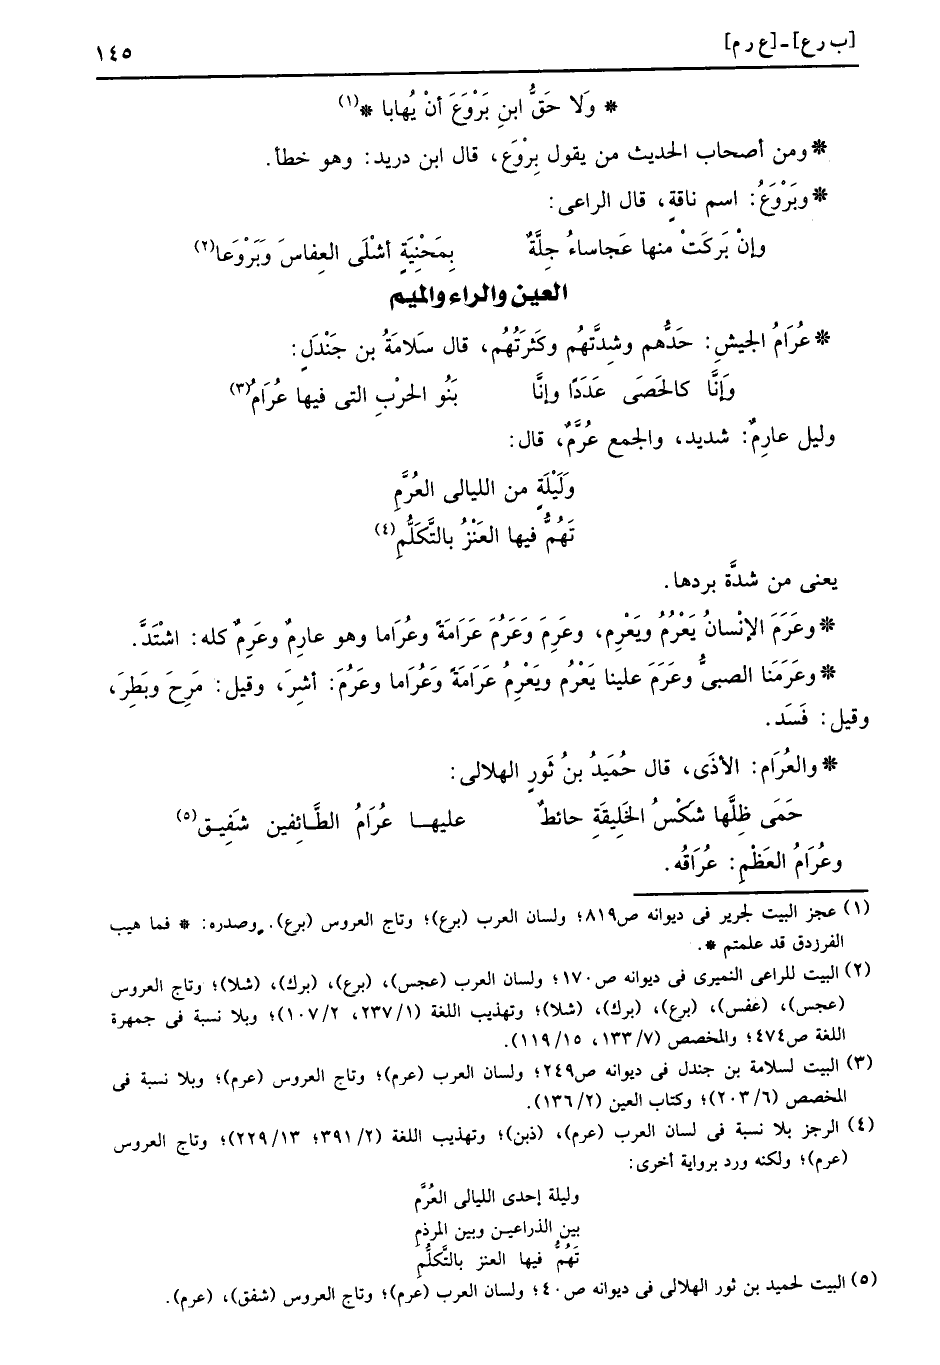 [ب ر ع] ـ [ع ر م] ١٤٥
* وَلا حَقُّ ابنِ بَرْوَعَ أنْ يُهابا *(١)
* ومن أصحاب الحديث من يقول بِرْوَع، قال ابن دريد: وهو خطأ.
* وبَرْوَعُ: اسم ناقةٍ، قال الراعى:
وإنْ بَركَتْ منها عَجاساءُ جِلَّةٌ بِمَحْنِيَةٍ أشْلَى العِفاسَ وَبَرْوَعا(٢)
العين والراء والميم
* عُرَامُ الجيشِ: حَدُّهم وشِدَّتهُم وكَثرَتُهُم، قال سَلامَةُ بن جَندَلٍ:
وَإنَّا كالحَصَى عَدَدًا وإنَّا بَنُو الحرْبِ التى فيها عُرَامُ(٣)
وليل عارِمٌ: شديد، والجمع عُرَّمٌ، قال:
وَلَيْلَةٍ من الليالى العُرَّمِ
تَهُمُّ فيها العَنْزُ بالتَّكَلُّمِ(٤)
يعنى من شدَّة بردها.
* وعَرَمَ الإنْسانُ يَعْرُمُ ويَعْرِم، وعَرِمَ وَعَرُمَ عَرَامَةً وعُرَاما وهو عارِمٌ وعَرِمٌ كله: اشْتَدَّ.
* وعَرَمَنَا الصبىُّ وعَرَمَ علينا يَعْرُم ويَعْرِمُ عَرَامَةً وَعُرَاما وعَرُمَ: أشرَ، وقيل: مَرِحَ وبَطِرَ،
وقيل: فَسَد.
* والعُرَام: الأذَى، قال حُمَيدُ بنُ ثَورٍ الهلالى:
حَمَى ظِلَّها شكْسُ الخَلِيقَةِ حائطٌ عليهـا عُرَامُ الطَّائِفين شَفِيـق(٥)
وعُرَامُ العَظْمِ: عُرَاقُه.
(١) عجز البيت لجرير فى ديوانه ص٨١٩؛ ولسان العرب (برع)؛ وتاج العروس (برع). وصدره: * فما هيب
الفرزدق قد علمتم *.
(٢) البيت للراعى النميرى فى ديوانه ص١٧٠؛ ولسان العرب (عجس)، (برع)، (برك)، (شلا)؛ وتاج العروس
(عجس)، (عفس)، (برع)، (برك)، (شلا)؛ وتهذيب اللغة (٢٣٧/١، ١٠٧/٢)؛ وبلا نسبة فى جمهرة
اللغة ص٤٧٤؛ والمخصص (١٣٣/٧، ١١٩/١٥).
(٣) البيت لسلامة بن جندل فى ديوانه ص٢٤٩؛ ولسان العرب (عرم)؛ وتاج العروس (عرم)؛ وبلا نسبة فى
المخصص (٢٠٣/٦)؛ وكتاب العين (١٣٦/٢).
(٤) الرجز بلا نسبة فى لسان العرب (عرم)، (ذبن)؛ وتهذيب اللغة (٣٩١/٢؛ ٢٢٩/١٣)؛ وتاج العروس
(عرم)؛ ولكنه ورد برواية أخرى:
وليلة إحدى الليالى العُرَّم
بين الذراعيـن وبين المرذم
تَهُمُّ فيها العنز بالتَّكلُّمِ
(٥) البيت لحميد بن ثور الهلالى فى ديوانه ص٤٠؛ ولسان العرب (عرم)؛ وتاج العروس (شفق)، (عرم).